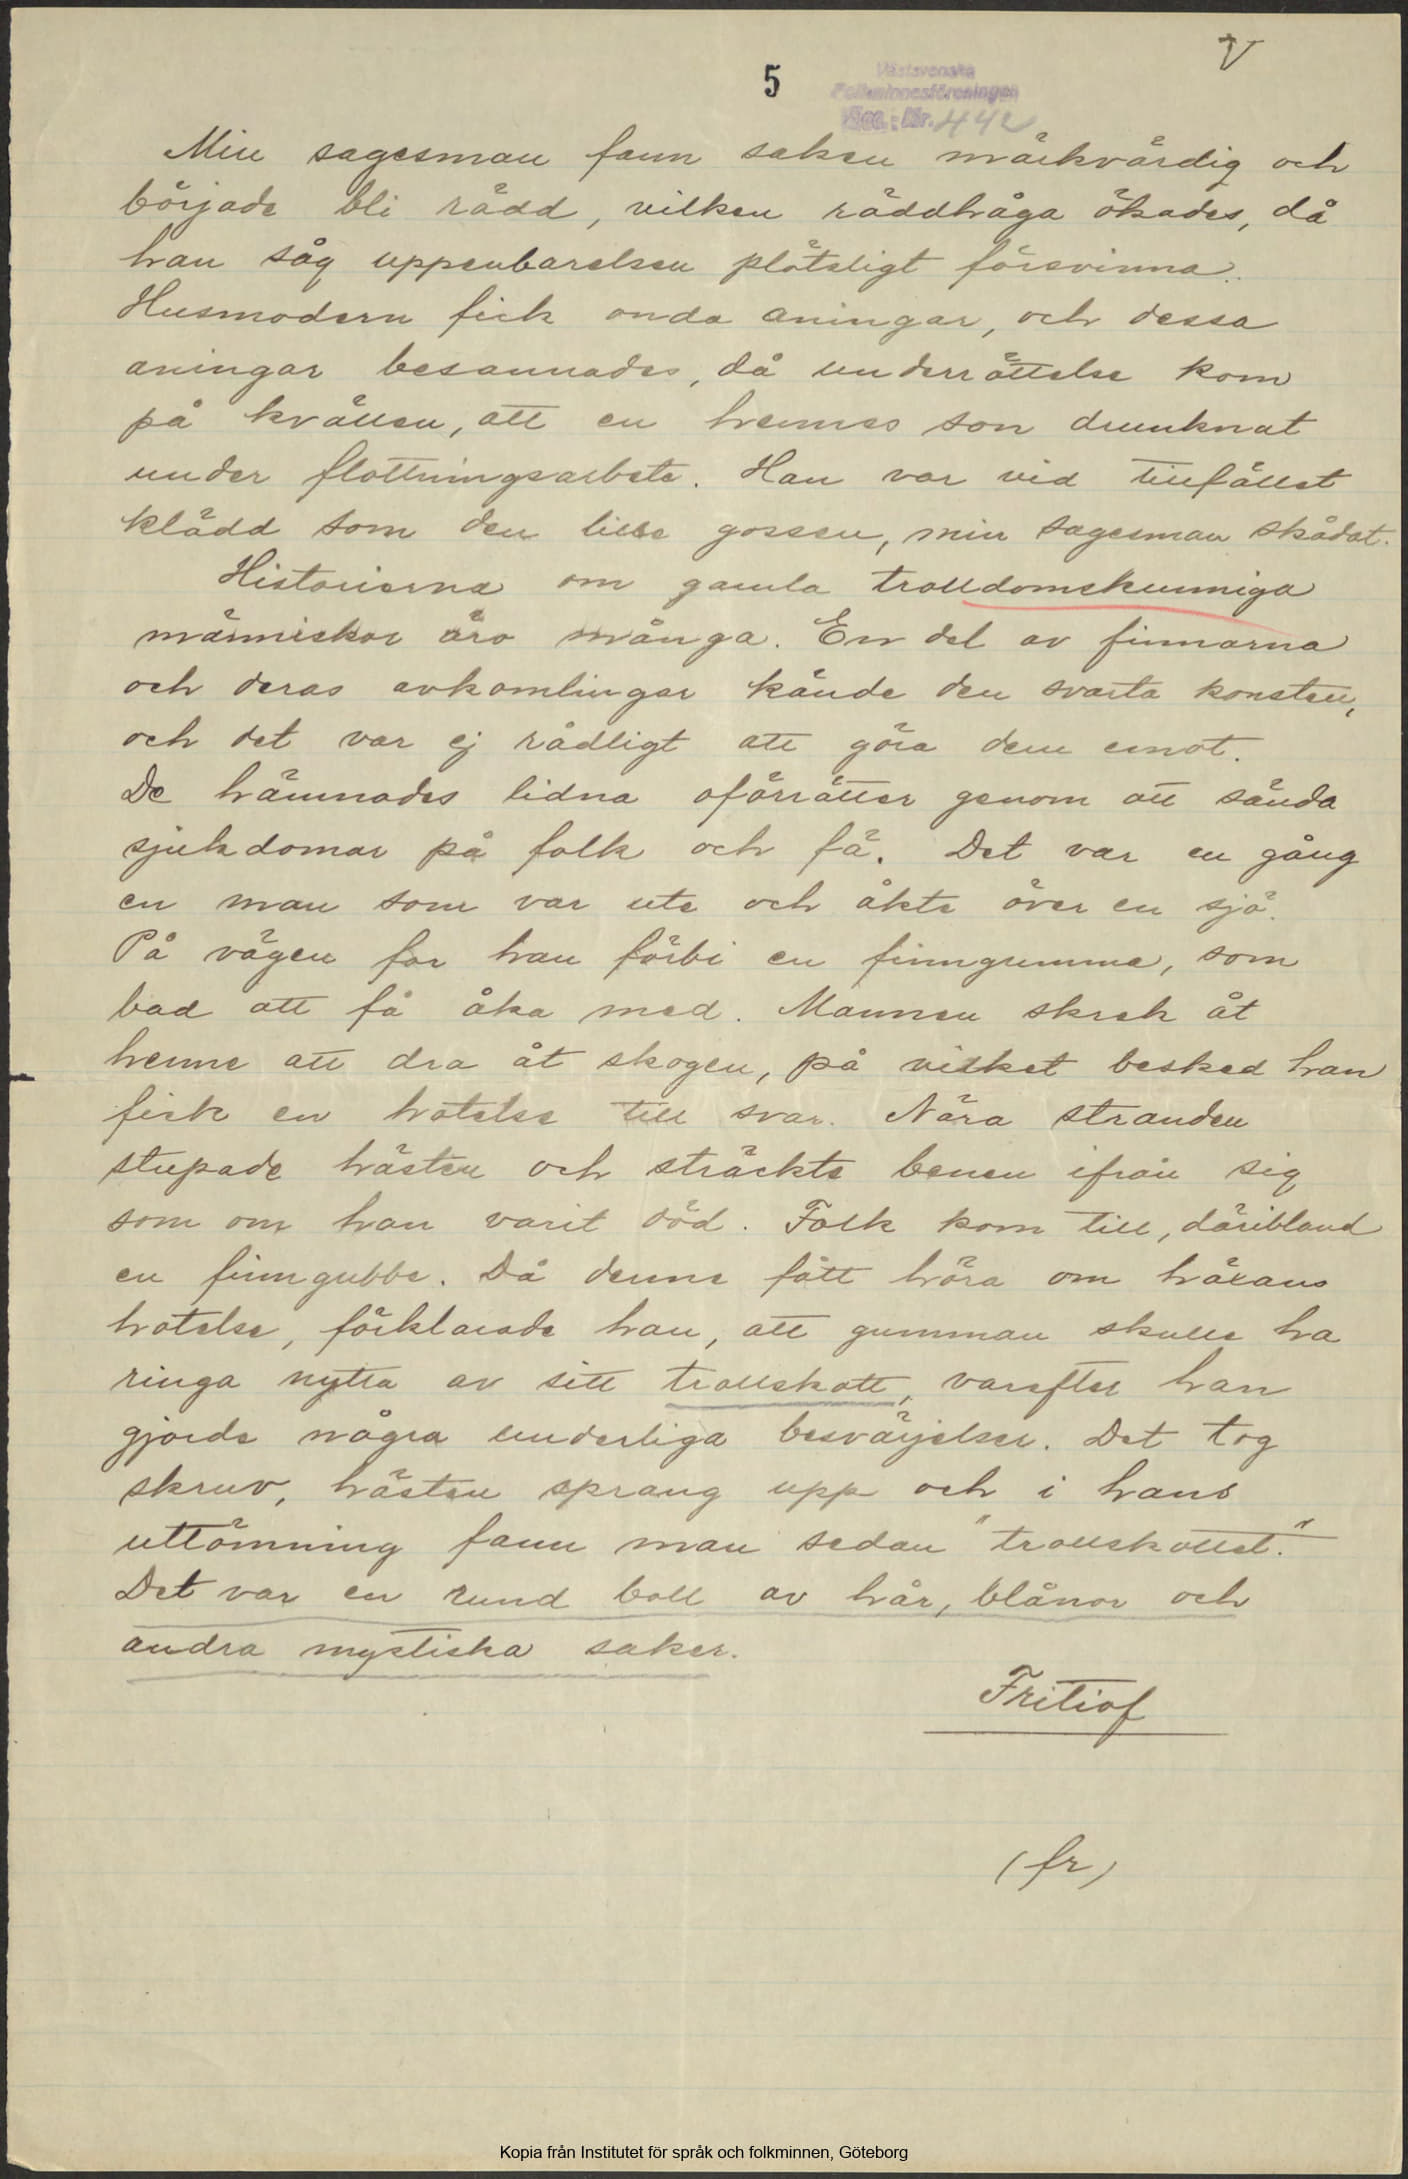 V
5
Västsvenska
Folkminnesföreningen
Acc. Nr. 442
Min sagesman fann saken märkvärdig och
började bli rädd, vilken räddhåga ökades, då
han såg uppenbarelsen plötsligt försvinna.
Husmodern fick onda aningar, och dessa
aningar besannades, då underrättelse kom
på kvällen, att en hennes son drunknat
under flottningsarbete. Han var vid tillfället
klädd som den lille gossen, min sagesman skådat.
Historierna om gamla trolldomskunniga
människor äro många. En del av finnarna
och deras avkomlingar kände den svarta konsten,
och det var ej rådligt att göra dem emot.
De hämnades lidna oförrätter genom att sända
sjukdomar på folk och fä. Det var en gång
en man som var ute och åkte över en sjö.
På vägen for han förbi en finngumma, som
bad att få åka med. Mannen skrek åt
henne att dra åt skogen, på vilket besked han
fick en hotelse till svar. Nära stranden
stupade hästen och sträckte benen ifrån sig
som om han varit död. Folk kom till, däribland
en finngubbe. Då denne fått höra om häxans
hotelse, förklarade han, att gumman skulle ha
ringa nytta av sitt trollskott, varefter han
gjorde några underliga besvärjelser. Det tog
skruv, hästen sprang upp och i hans
uttömning fann man sedan "trollskottet."
Det var en rund boll av hår, blånor och
andra mystiska saker.
Fritiof
(fr)
Kopia från Institutet för språk och folkminnen, Göteborg